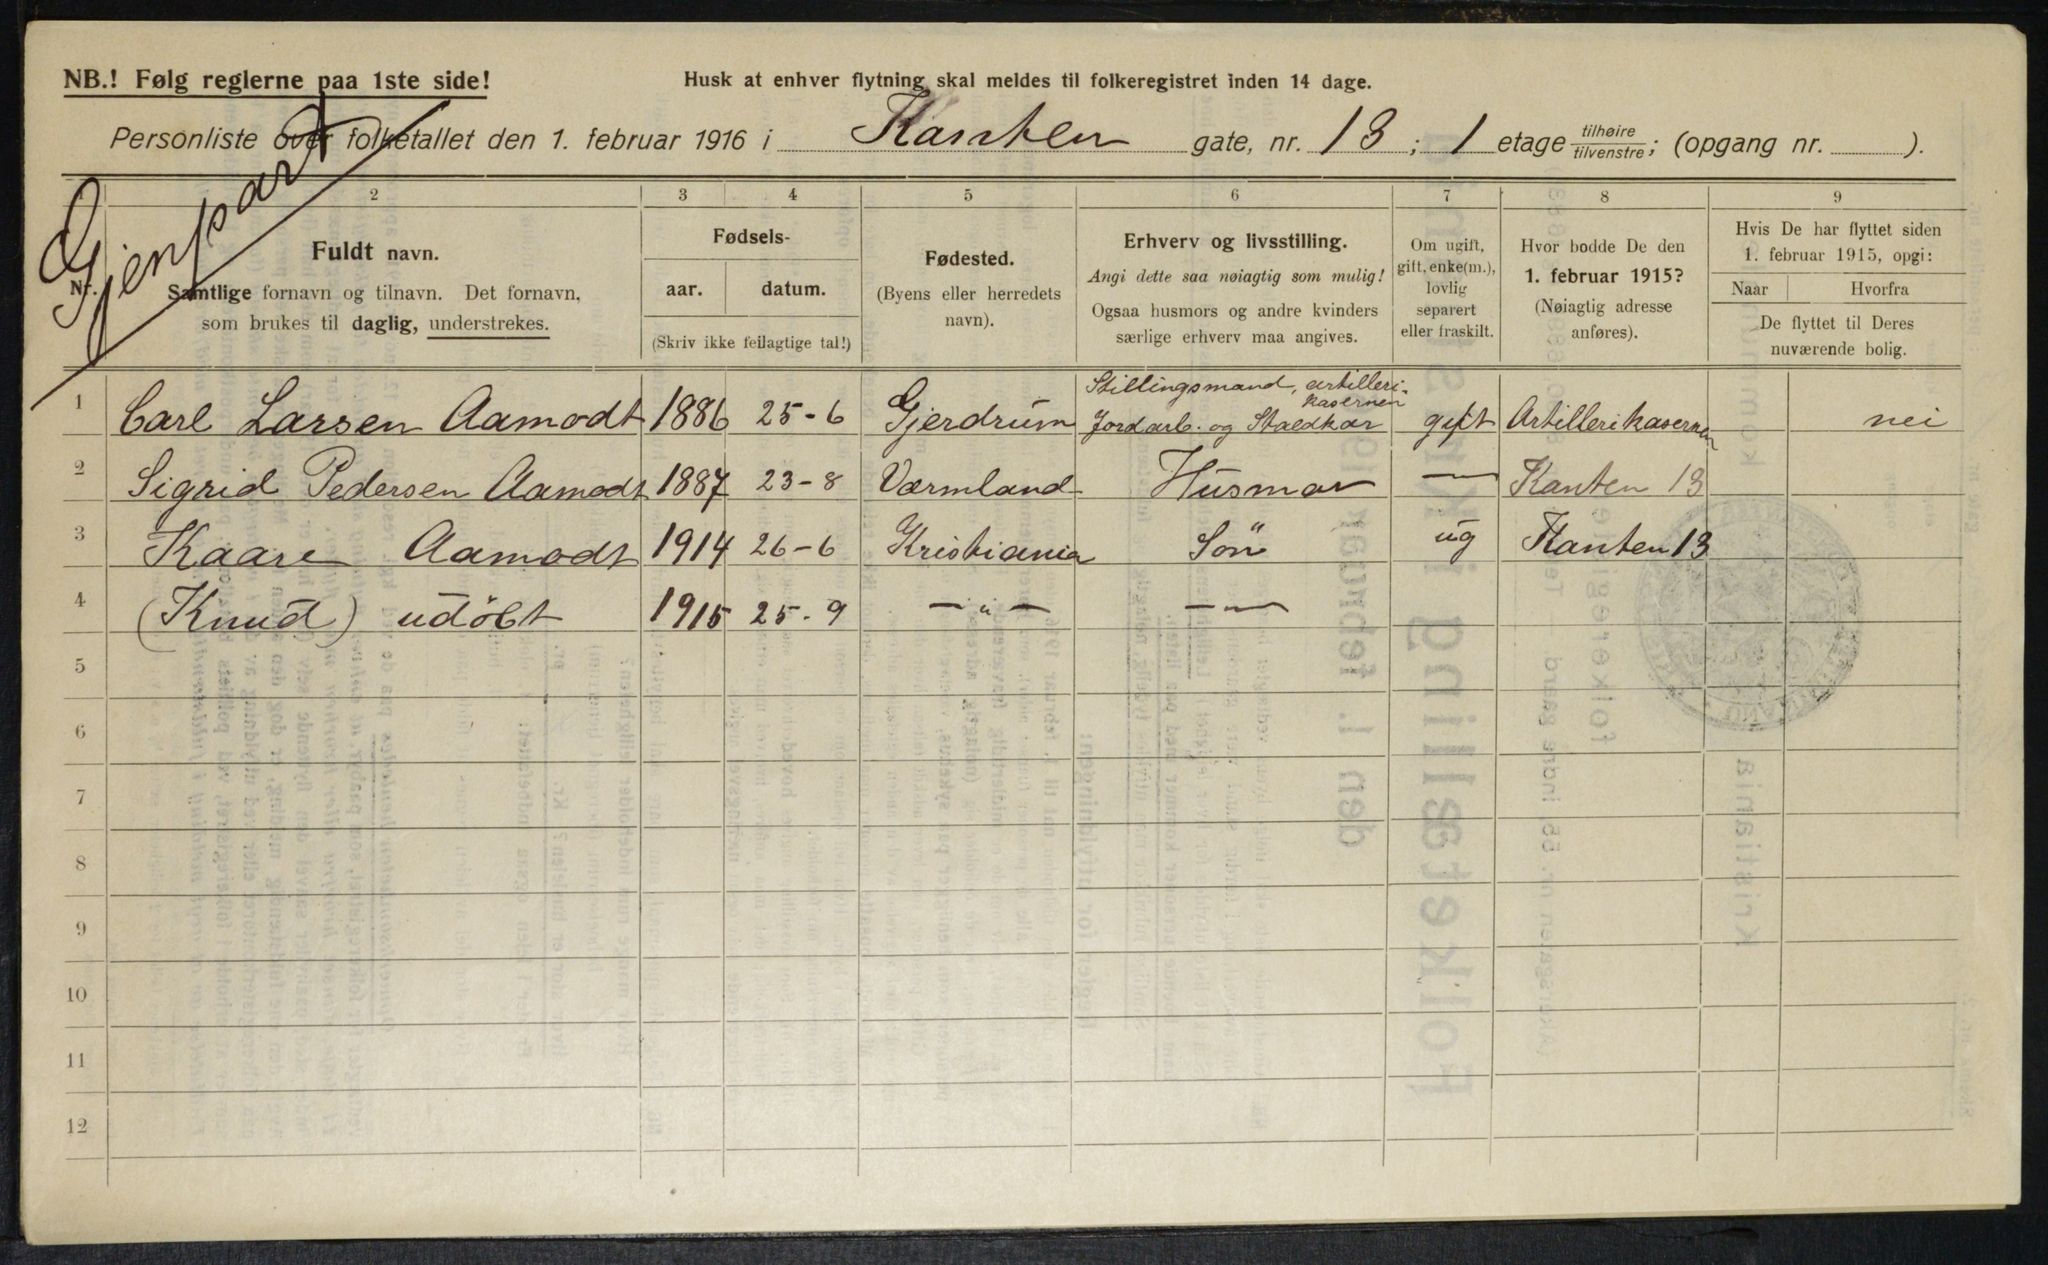 NB.! Følg reglerne paa 1ste side!
Husk at enhver flytning skal meldes til folkeregistret inden 14 dage.
Personliste over folketallet den 1. februar 1916 i Kanten gate, nr. 13; 1 etage tilhøire/tilvenstre; (opgang nr. ).
Gjenpart
2 3 4 5 6 7 8 9
Nr.
Fuldt navn.
Samtlige fornavn og tilnavn. Det fornavn,
som brukes til daglig, understrekes.
Fødsels-
aar. datum.
(Skriv ikke feilagtige tal!)
Fødested.
(Byens eller herredets
navn).
Erhverv og livsstilling.
Angi dette saa nøiagtig som mulig!
Ogsaa husmors og andre kvinders
særlige erhverv maa angives.
Om ugift,
gift, enke(m.),
lovlig
separert
eller fraskilt.
Hvor bodde De den
1. februar 1915?
(Nøiagtig adresse
anføres).
Hvis De har flyttet siden
1. februar 1915, opgi:
Naar Hvorfra
De flyttet til Deres
nuværende bolig.
1 Carl Larsen Aamodt 1886 25-6 Gjerdrum Stillingsmand, artilleri-kasernen Jordarb. og Staldkar gift Artillerikasernen nei
2 Sigrid Pedersen Aamodt 1887 23-8 Värmland Husmor — Kanten 13
3 Kaare Aamodt 1914 26-6 Kristiania Sön ug Kanten 13
4 (Knud) udöbt 1915 25-9 — " — — " —
5
6
7
8
9
10
11
12